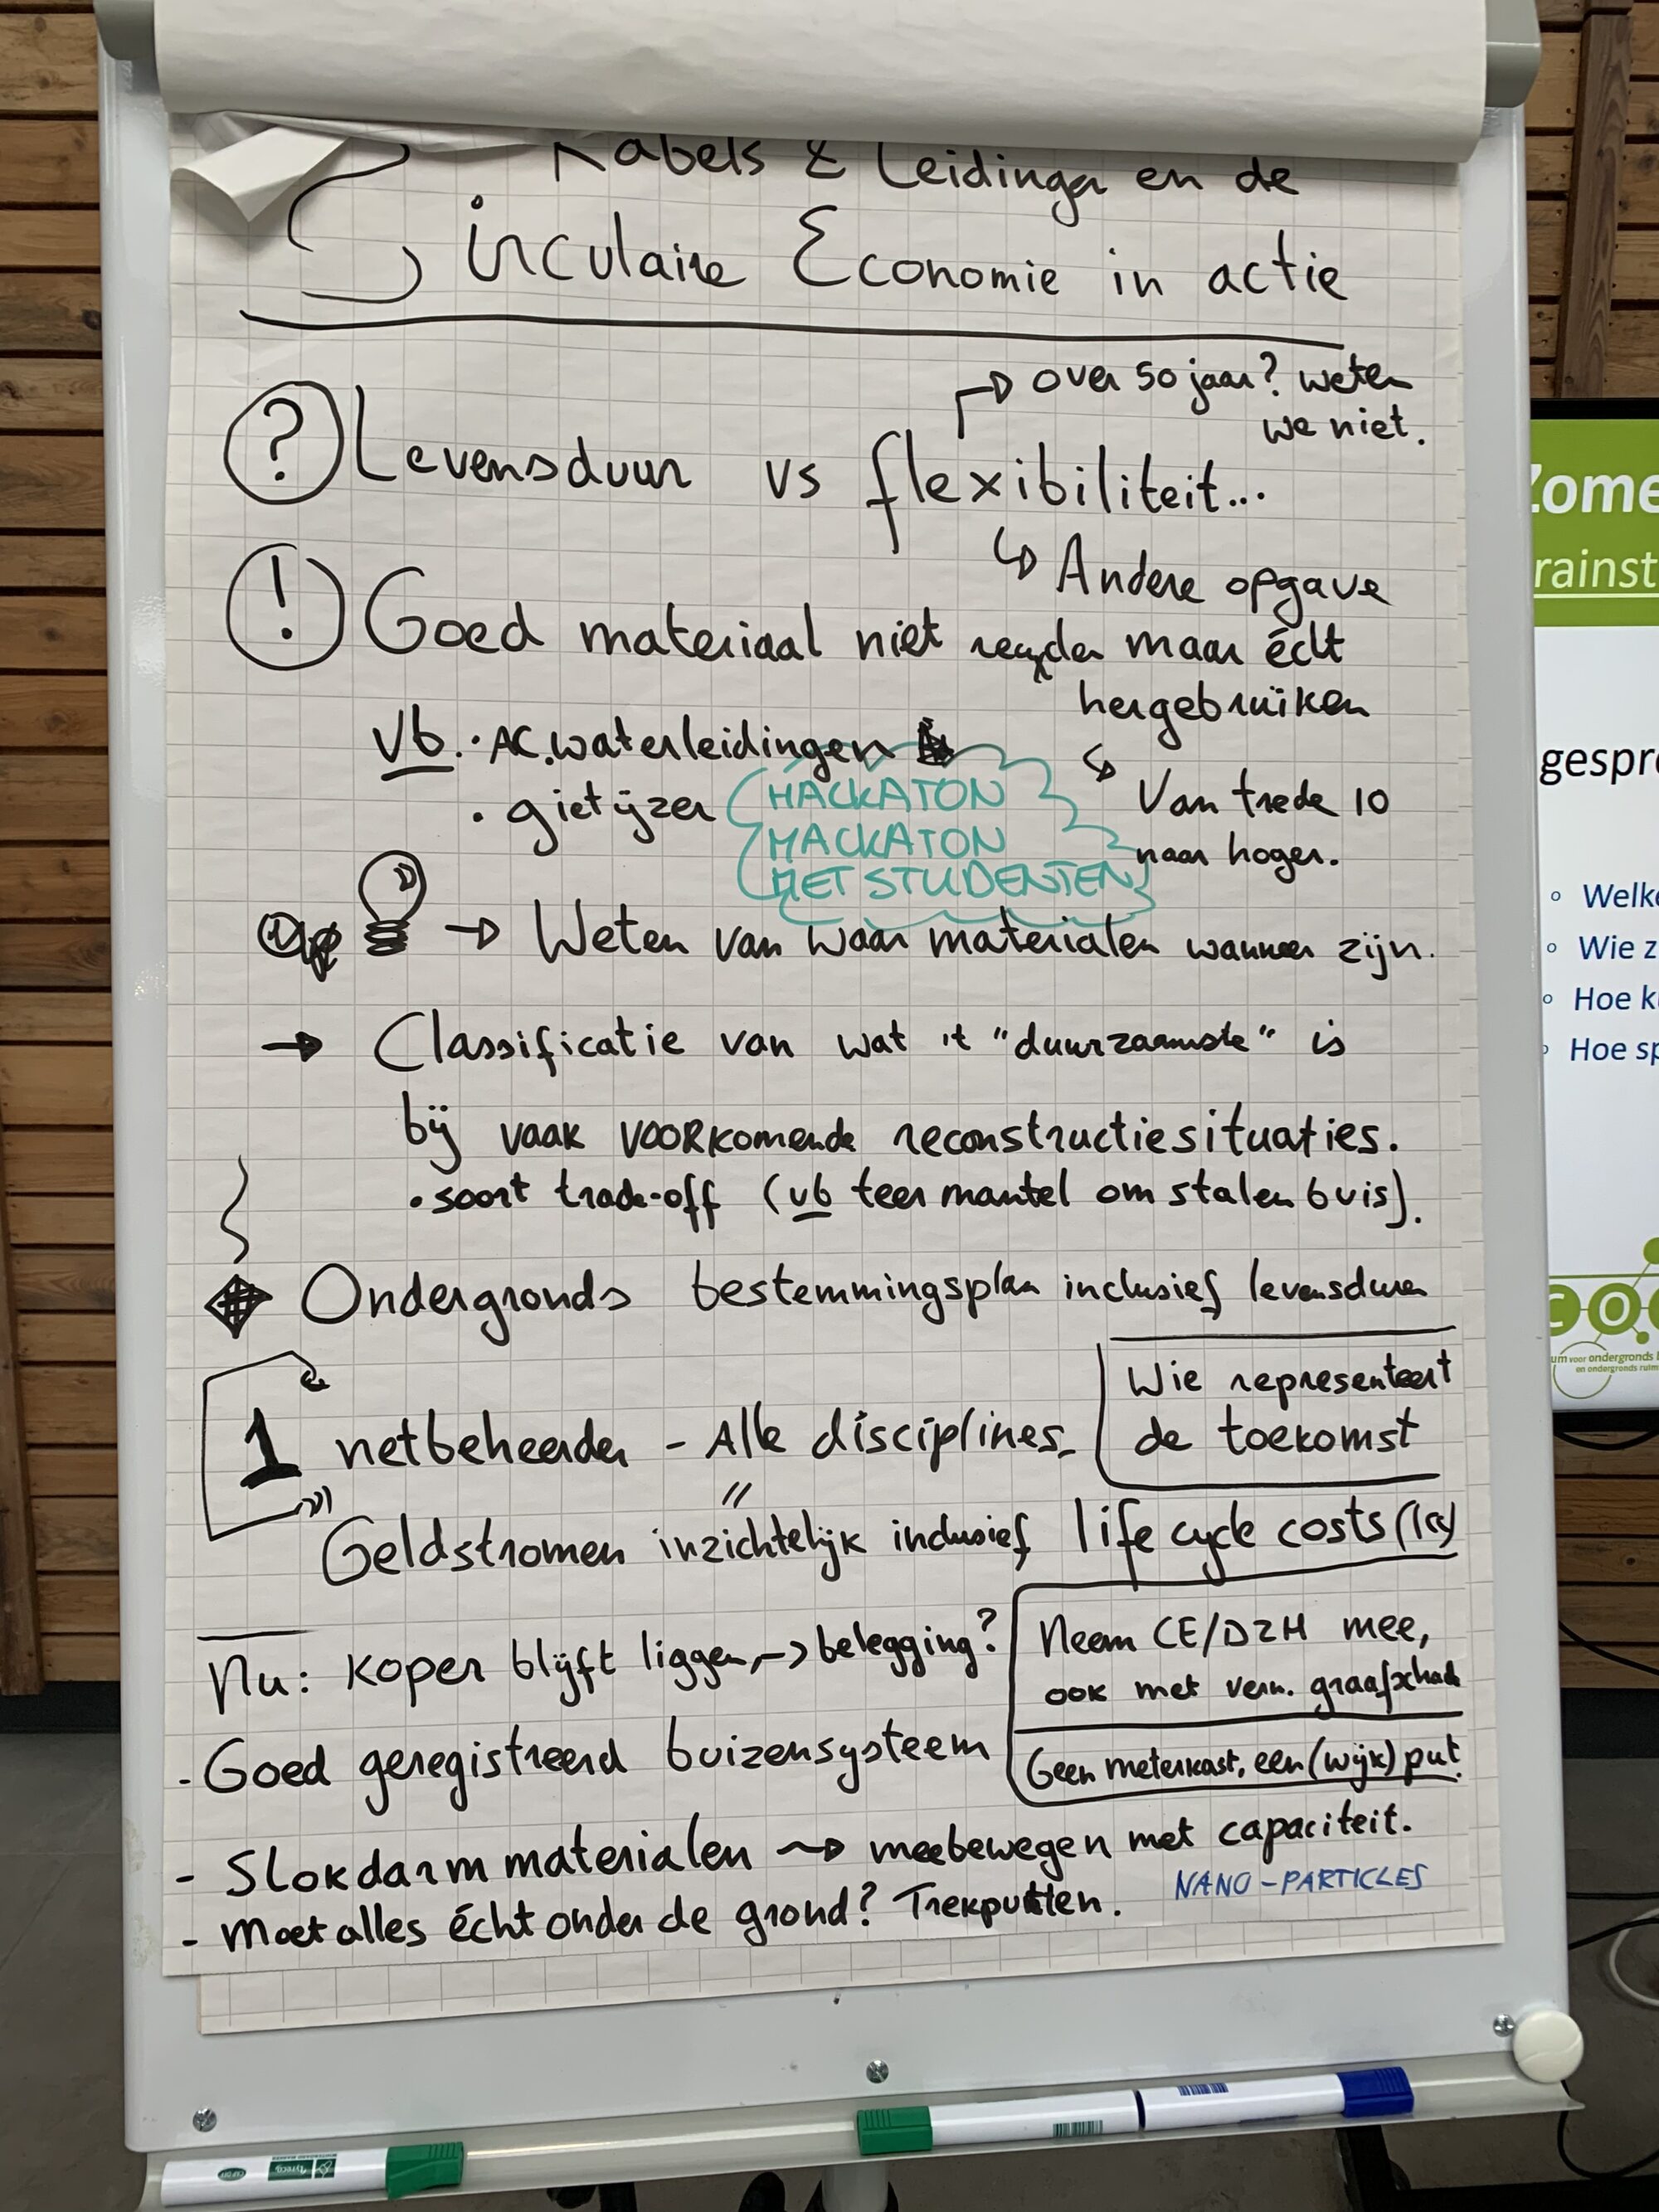 Kabels & Leidingen en de
Circulaire Economie in actie
over 50 jaar? weten
we niet.
? Levensduur vs flexibiliteit...
Andere opgave
! Goed materiaal niet maar écht
hergebruiken
Vb. · AC.waterleidingen
Van trede 10
naar hoger.
· gietijzer
HACKATON
MACKATON
MET STUDENTEN
→ Weten van waar materialen wanneer zijn.
→ Classificatie van wat 't "duurzaamste" is
bij vaak voorkomende reconstructiesituaties.
• soort trade-off (vb teer mantel om stalen buis).
Ondergronds bestemmingsplan inclusief levensduren
Wie representeert
de toekomst
1 netbeheerder - Alle disciplines
"
Geldstromen inzichtelijk inclusief life cycle costs
Nu: koper blijft liggen, → belegging?
Neem CE/DZH mee,
ook met verm. graafschade
Geen meterkast, een (wijk) put!
- Goed geregistreerd buizensysteem
- Slokdarm materialen → meebewegen met capaciteit.
NANO-PARTICLES
- Moet alles écht onder de grond? Trekputten.
Zome
rainst
gespr
◦ Welke
◦ Wie z
◦ Hoe k
◦ Hoe sp
CO
um voor ondergronds
en ondergronds ruim